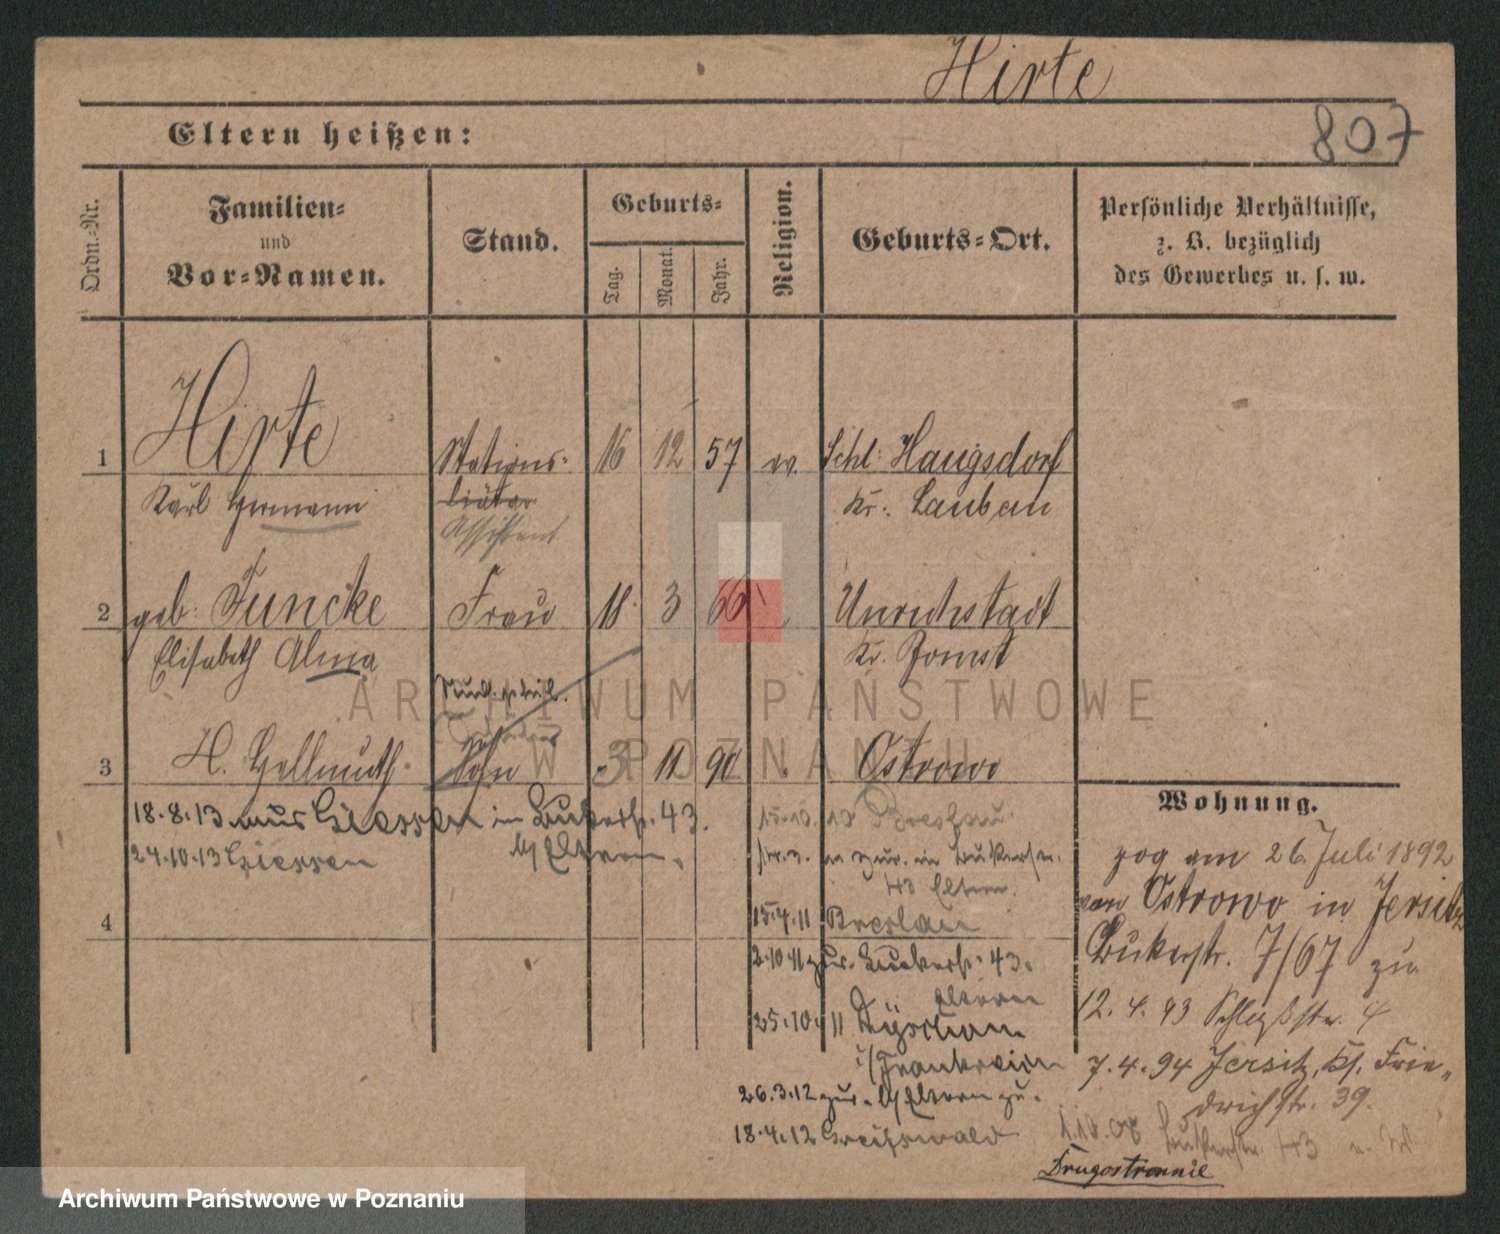 Hirte
807
Eltern heißen:
Ordn.-Nr.
Familien-
und
Vor-Namen.
Stand.
Geburts-
Tag.
Monat.
Jahr.
Religion.
Geburts-Ort.
Persönliche Verhältnisse,
z. B. bezüglich
des Gewerbes u. s. w.
1 Hirte Stations- 16 12 57 ev. Schl: Haugsdorf
Karl Hermann diätar Kr. Lauban
Assistent
2 geb. Funcke Frau 18 3 Unruhstadt
Elisabeth Alma Kr. Bomst
3 H. Hellmuth Sohn 3 11 90 Ostrowo
18.8.13 aus Giessen in Bukerstr. 43.
b/Eltern.
24.10.13 Giessen
15.10.10 Breslau
zur. in Bukerstr.
43 Eltern.
4
15.4.11 Breslau
2.10.11 zur. Bukerstr. 43.
Eltern
25.10.11
i/Frankreich
26.3.12 zur. b/Eltern zu.
18.4.12 Greifswald
Wohnung.
zog am 26. Juli 1892
von Ostrowo in Jersitz
Bukerstr. 7/67 zu
12.4.93 Schloßstr. 4
7.4.94 Jersitz, Ks. Frie-
drichstr. 39.
1.10.08 Bukerstr. 43
Drugostronnie
ARCHIWUM PAŃSTWOWE
W POZNANIU
Archiwum Państwowe w Poznaniu